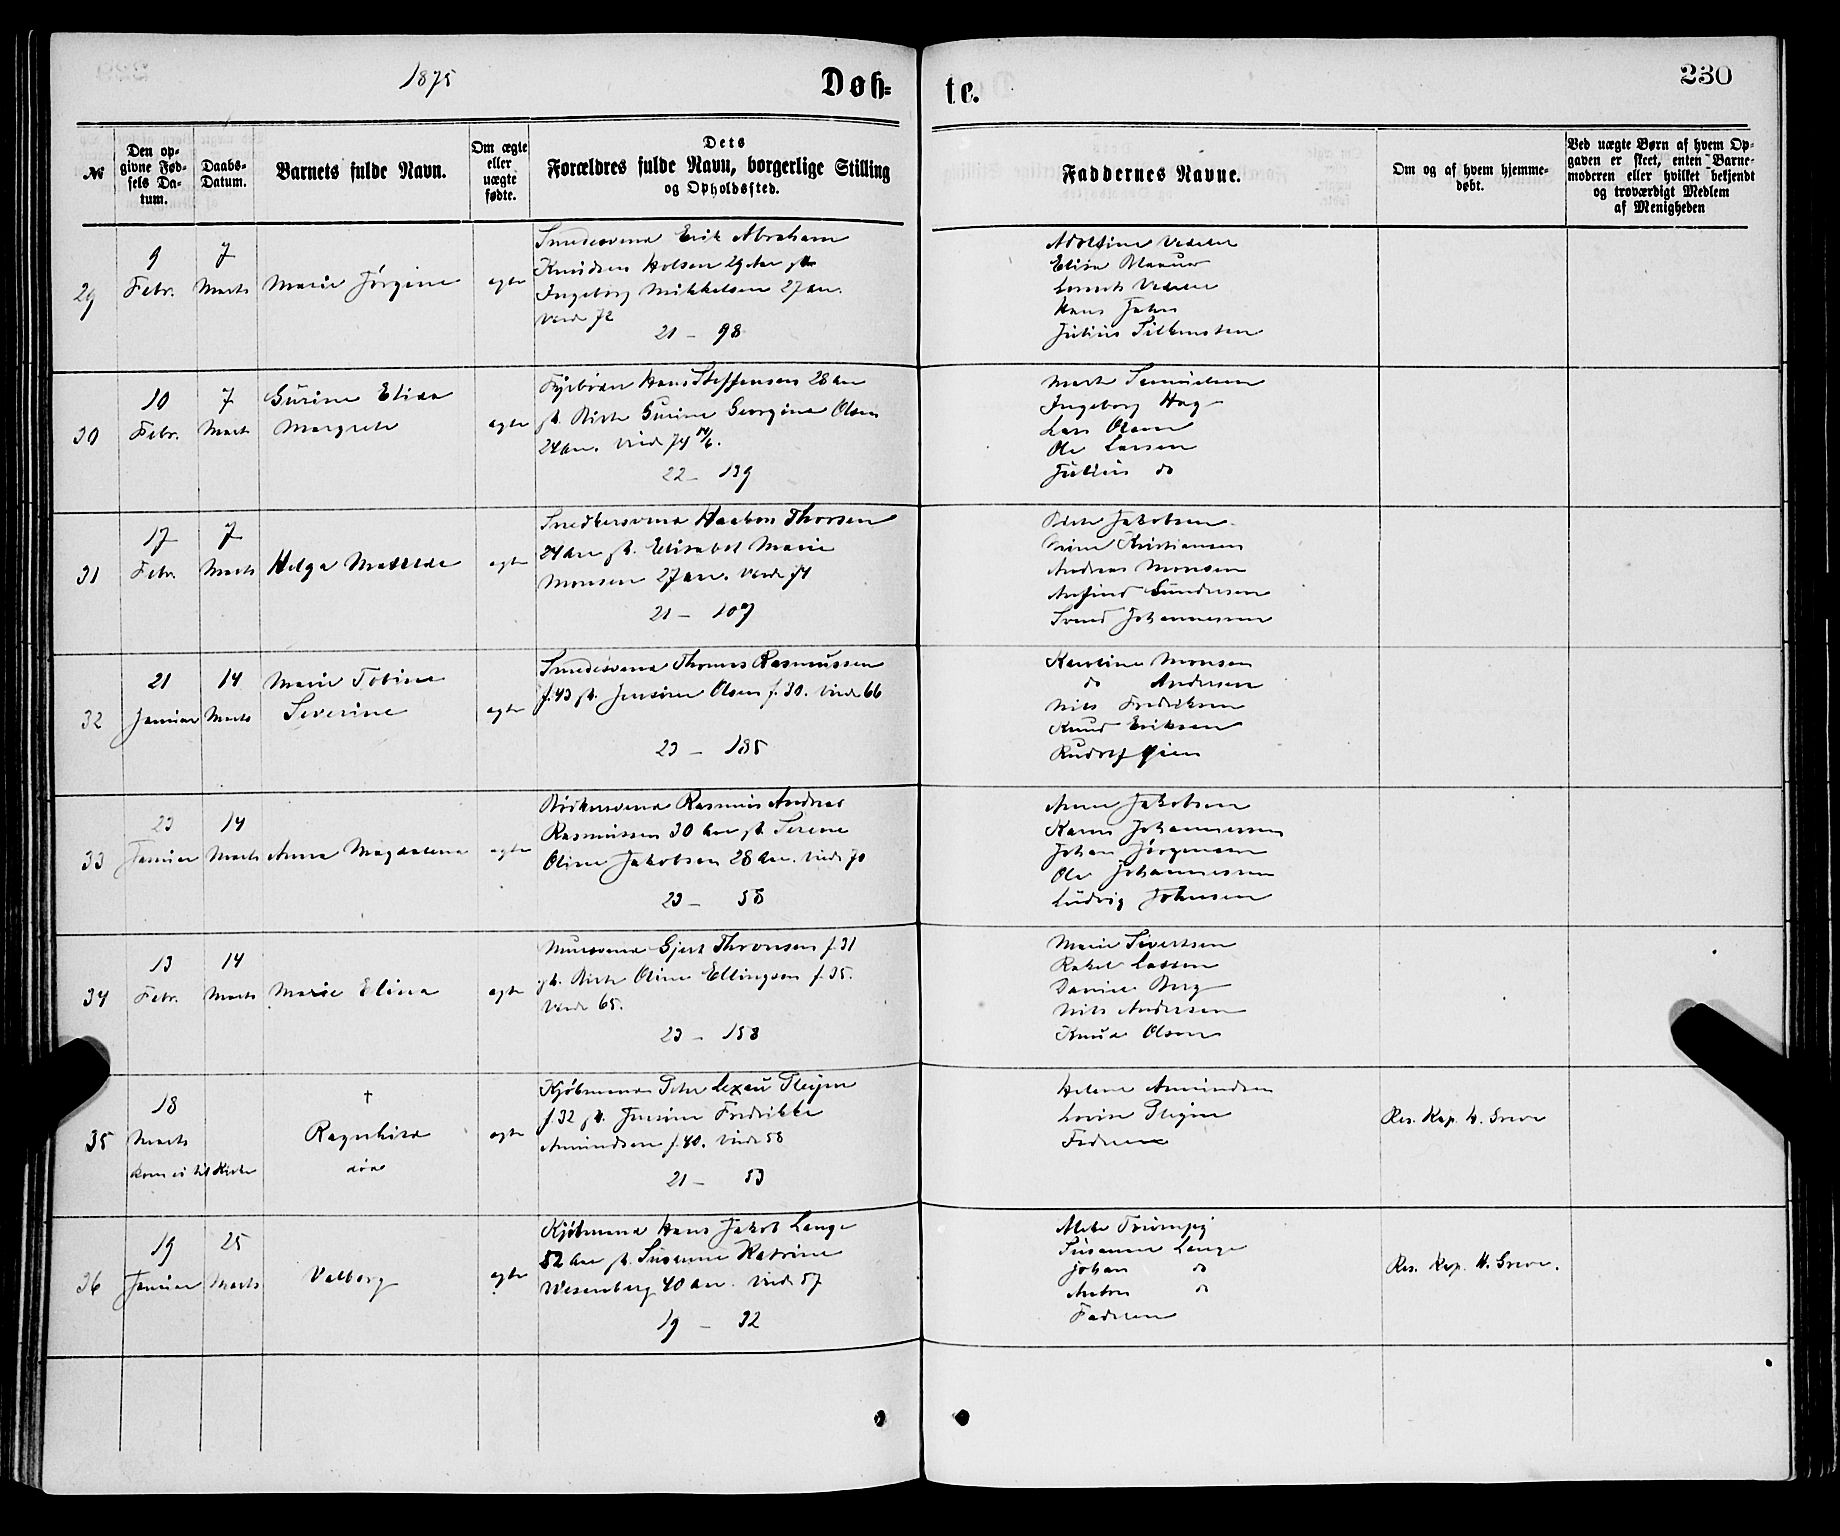 1875
Døb-
te.
230
№
Den op-
givne Fød-
sels Da-
tum.
Daabs-
Datum.
Barnets fulde Navn.
Om ægte
eller
uægte
fødte.
Dets
Forældres fulde Navn, borgerlige Stilling
og Opholdssted.
Faddernes Navne.
Om og af hvem hjemme-
døbt.
Ved uægte Børn af hvem Op-
gaven er skeet, enten Barne-
moderen eller hvilket bekjendt
og troværdigt Medlem
af Menigheden
29
9
Febr.
7
Marts
Marie Jørgine
ægte
Smedesvend Erik Abraham
Knudsen Holsen 29 Aar gb
Ingeborg Mikkelsen 27 Aar.
viede 72
21 - 98
Adolfine Vedeler
Elisa
Vedeler
Hans Jahn
Julius
30
10
Febr.
7
Marts
Gurine Elisa
Margrete
ægte
Fyrbøder Hans Steffensen 28 Aar
gb. Birte Gurine Georgine Olsen
24 Aar. viede 74 14/6.
22 - 139
Marte Samuelsen
Ingeborg Hag
Lars Olsen
Ole Larsen
Julius do
31
17
Febr.
7
Marts
Helga Mathilde
ægte
Snedkersvend Haakon Thorsen
24 Aar gb. Elisabet Marie
Monsen 27 Aar. viede 74
21 - 107
Birte Jakobsen
Kristiansen
Andreas Monsen
Anfind Gundersen
Svend Johannessen
32
21
Januar
14
Marts
Marie Tobine
Severine
ægte
Smedesvend Thomas Rasmussen
f. 43 gb. Jensine Olsen f. 30. viede 66
23 - 185
Karoline Monsen
do Andersen
Nils Fredriksen
Knud Eriksen
Rudolf Øien
33
23
Januar
14
Marts
Anna Magdalena
ægte
Bødkersvend Rasmus Andreas
Rasmussen 30 Aar gb. Serene
Oline Jakobsen 28 Aar. viede 70
23 - 58
Anne Jakobsen
Karen Johannessen
Johan Jørgensen
Ole Johannessen
Ludvig Johnsen
34
13
Febr.
14
Marts
Marie Elina
ægte
Mursvend Gjert Thronsen f. 31
gb. Birte Oline Ellingsen f. 35.
viede 65.
23 - 158
Marie Sivertsen
Rakel Lassen
Daniel Berg
Nils Andersen
Knud Olsen
35
18
Marts
kom ei til Kirke
†
Ragnhild
død
ægte
Kjøbmand Peter Lexau Pleym
f. 32 gb. Jensine Fredrikke
Amundsen f. 40. viede 58
21 - 53
Helene Amundsen
Lovise Pleym
Faderen
Res. Kap. H. Greve
36
19
Januar
25
Marts
Valborg
ægte
Kjøbmand Hans Jakob Lange
52 Aar gb. Susanne Katrine
Wesenberg 40 Aar. viede 57
19 - 32
Alete Trumpy
Susanne Lange
Johan do
Anton do
Faderen
Res. Kap. H. Greve.